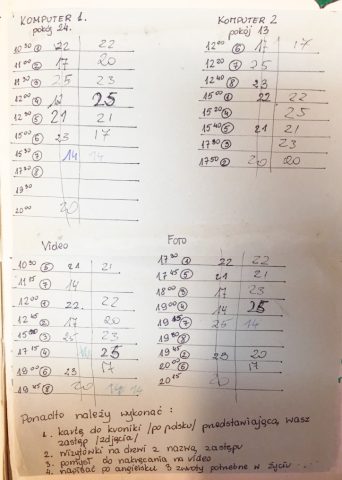 KOMPUTER 1.
pokój 24.
10³⁰ ① 22 22
11⁰⁰ ② 17 20
11³⁰ ③ 25 23
12⁰⁰ ④ 25
12³⁰ ⑤ 21 21
15⁰⁰ ⑥ 23 17
15³⁰ 14 14
17³⁰ ⑧
19³⁰
20⁰⁰ 20
KOMPUTER 2
pokój 13
12⁰⁰ ⑥ 17 17
12²⁰ ⑦ 25
12⁴⁰ ⑧ 23
15⁰⁰ ① 22 22
15²⁰ ④ 25
15⁴⁰ ⑤ 21 21
17³⁰ ③ 23
17⁵⁰ ② 20 20
Video
10³⁰ ⑤ 21 21
11¹⁵ ⑦ 14
12⁰⁰ ① 22 22
12⁴⁵ ② 17 20
15⁰⁰ ③ 25 23
17¹⁵ ④ 25
19⁰⁰ ⑥ 23 17
19⁴⁵ ⑧ 20
Foto
17³⁰ ① 22 22
17⁴⁵ ⑤ 21 21
18⁰⁰ ③ 17 23
19⁰⁰ ④ 14 25
19¹⁵ ⑦ 25 14
19³⁰ ⑧
19⁴⁵ ② 23 20
20⁰⁰ ⑥ 17
20¹⁵ 20
Ponadto należy wykonać :
1. kartę do kroniki /po polsku/ przedstawiającą wasz
zastęp /zdjęcia/
2. wizytówki na drzwi z nazwą zastępu
3. pomysł do nakręcania na video
4. napisać po angielsku 3 zwroty potrzebne w życiu ...